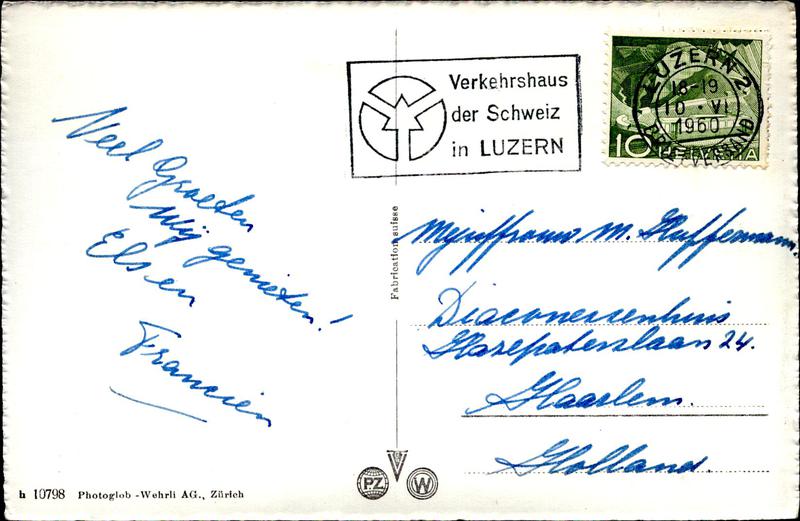 Verkehrshaus
der Schweiz
in LUZERN
LUZERN 2
18-19
10·VI
1960
BRIEFVERSAND
10 HELVETIA
Veel Groeten
Wij genieten!
Els en
Francien
Fabrication suisse
Mejuffrouw M. Huffermann.
Diaconessenhuis
Hazepaterslaan 24.
Haarlem.
Holland.
h 10798 Photoglob-Wehrli AG., Zürich
PZ W